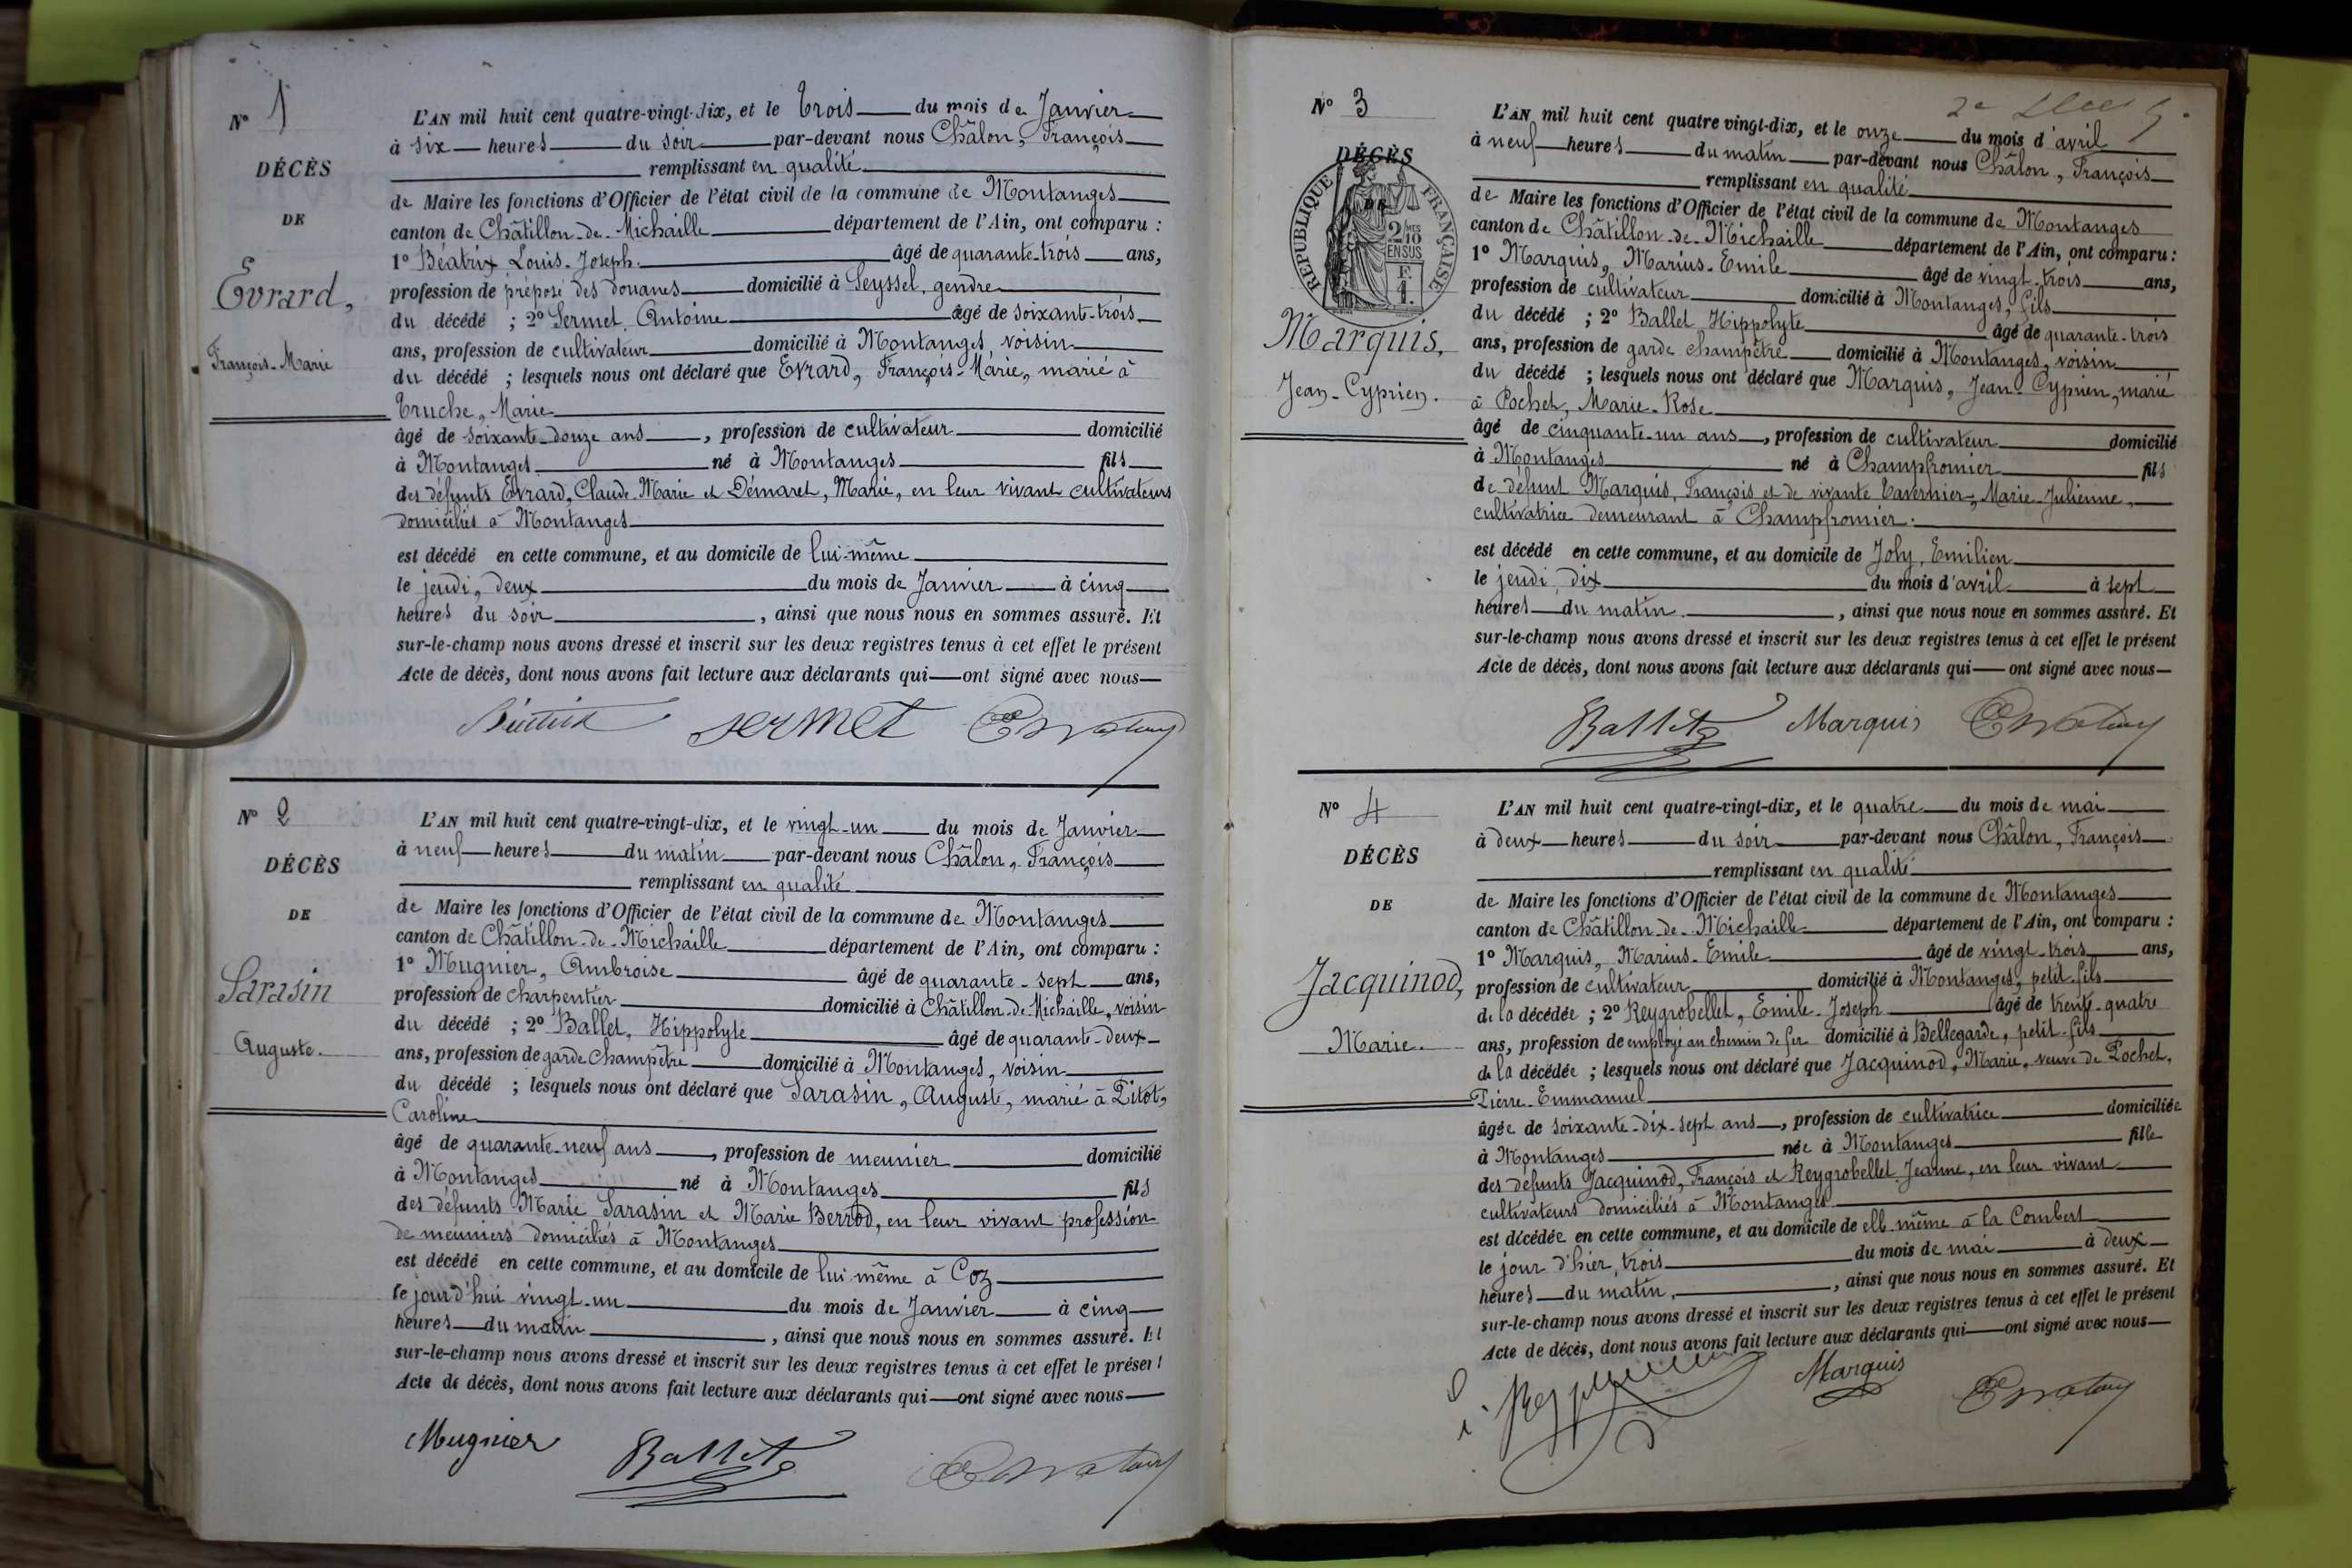 N° 1
DÉCÈS
DE
Evrard,
François-Marie
L'AN mil huit cent quatre-vingt-dix, et le trois du mois de Janvier
à six heures du soir par-devant nous Châlon, François
remplissant en qualité
de Maire les fonctions d'Officier de l'état civil de la commune de Montanges
canton de Châtillon-de-Michaille département de l'Ain, ont comparu :
1° Béatrix Louis-Joseph âgé de quarante-trois ans,
profession de préposé des douanes domicilié à Seyssel, gendre
du décédé ; 2° Sermet, Antoine âgé de soixante-trois
ans, profession de cultivateur domicilié à Montanges, voisin
du décédé ; lesquels nous ont déclaré que Evrard, François-Marie, marié à
Truche, Marie
âgé de soixante-douze ans, profession de cultivateur domicilié
à Montanges né à Montanges fils
des défunts Evrard, Claude-Marie et Démaret, Marie, en leur vivant cultivateurs
domiciliés à Montanges
est décédé en cette commune, et au domicile de lui-même
le jeudi, deux du mois de Janvier à cinq
heures du soir, ainsi que nous nous en sommes assuré. Et
sur-le-champ nous avons dressé et inscrit sur les deux registres tenus à cet effet le présent
Acte de décès, dont nous avons fait lecture aux déclarants qui ont signé avec nous
Béatrix Sermet
N° 2
DÉCÈS
DE
Sarasin
Auguste.
L'AN mil huit cent quatre-vingt-dix, et le vingt-un du mois de Janvier
à neuf heures du matin par-devant nous Châlon, François
remplissant en qualité
de Maire les fonctions d'Officier de l'état civil de la commune de Montanges
canton de Châtillon-de-Michaille département de l'Ain, ont comparu :
1° Mugnier, Ambroise âgé de quarante-sept ans,
profession de charpentier domicilié à Châtillon-de-Michaille, voisin
du décédé ; 2° Ballet, Hippolyte âgé de quarante-deux
ans, profession de garde champêtre domicilié à Montanges, voisin
du décédé ; lesquels nous ont déclaré que Sarasin, Auguste, marié à Pitot,
Caroline
âgé de quarante-neuf ans, profession de meunier domicilié
à Montanges né à Montanges fils
des défunts Marie Sarasin et Marie Berrod, en leur vivant profession
de meuniers domiciliés à Montanges
est décédé en cette commune, et au domicile de lui-même à Coz
le jourd'hui vingt-un du mois de Janvier à cinq
heures du matin, ainsi que nous nous en sommes assuré. Et
sur-le-champ nous avons dressé et inscrit sur les deux registres tenus à cet effet le présent
Acte de décès, dont nous avons fait lecture aux déclarants qui ont signé avec nous
Mugnier Ballet
N° 3
DÉCÈS
DE
RÉPUBLIQUE FRANÇAISE
2/10 MES
EN SUS
F.
1.
Marquis,
Jean-Cyprien.
2e
L'AN mil huit cent quatre vingt-dix, et le onze du mois d'avril
à neuf heures du matin par-devant nous Châlon, François
remplissant en qualité
de Maire les fonctions d'Officier de l'état civil de la commune de Montanges
canton de Châtillon-de-Michaille département de l'Ain, ont comparu :
1° Marquis, Marius-Emile âgé de vingt-trois ans,
profession de cultivateur domicilié à Montanges, fils
du décédé ; 2° Ballet Hippolyte âgé de quarante-trois
ans, profession de garde champêtre domicilié à Montanges, voisin
du décédé ; lesquels nous ont déclaré que Marquis, Jean-Cyprien, marié
à Pochet, Marie-Rose
âgé de cinquante-un ans, profession de cultivateur domicilié
à Montanges né à Champfromier fils
de défunt Marquis, François et de vivante Tavernier, Marie-Julienne,
cultivatrice demeurant à Champfromier.
est décédé en cette commune, et au domicile de Joly, Emilien
le jeudi, dix du mois d'avril à sept
heures du matin, ainsi que nous nous en sommes assuré. Et
sur-le-champ nous avons dressé et inscrit sur les deux registres tenus à cet effet le présent
Acte de décès, dont nous avons fait lecture aux déclarants qui ont signé avec nous
Ballet Marquis
N° 4
DÉCÈS
DE
Jacquinod,
Marie.
L'AN mil huit cent quatre-vingt-dix, et le quatre du mois de mai
à deux heures du soir par-devant nous Châlon, François
remplissant en qualité
de Maire les fonctions d'Officier de l'état civil de la commune de Montanges
canton de Châtillon-de-Michaille département de l'Ain, ont comparu :
1° Marquis, Marius-Emile âgé de vingt-trois ans,
profession de cultivateur domicilié à Montanges, petit-fils
de la décédée ; 2° Reygrobellet, Emile-Joseph âgé de trente-quatre
ans, profession de employé au chemin de fer domicilié à Bellegarde, petit-fils
de la décédée ; lesquels nous ont déclaré que Jacquinod, Marie, veuve de Pochet,
Pierre-Emmanuel
âgée de soixante-dix-sept ans, profession de cultivatrice domiciliée
à Montanges née à Montanges fille
des défunts Jacquinod, François et Reygrobellet Jeanne, en leur vivant
cultivateurs domiciliés à Montanges
est décédée en cette commune, et au domicile de elle-même à la Combert
le jour d'hier, trois du mois de mai à deux
heures du matin, ainsi que nous nous en sommes assuré. Et
sur-le-champ nous avons dressé et inscrit sur les deux registres tenus à cet effet le présent
Acte de décès, dont nous avons fait lecture aux déclarants qui ont signé avec nous
Marquis